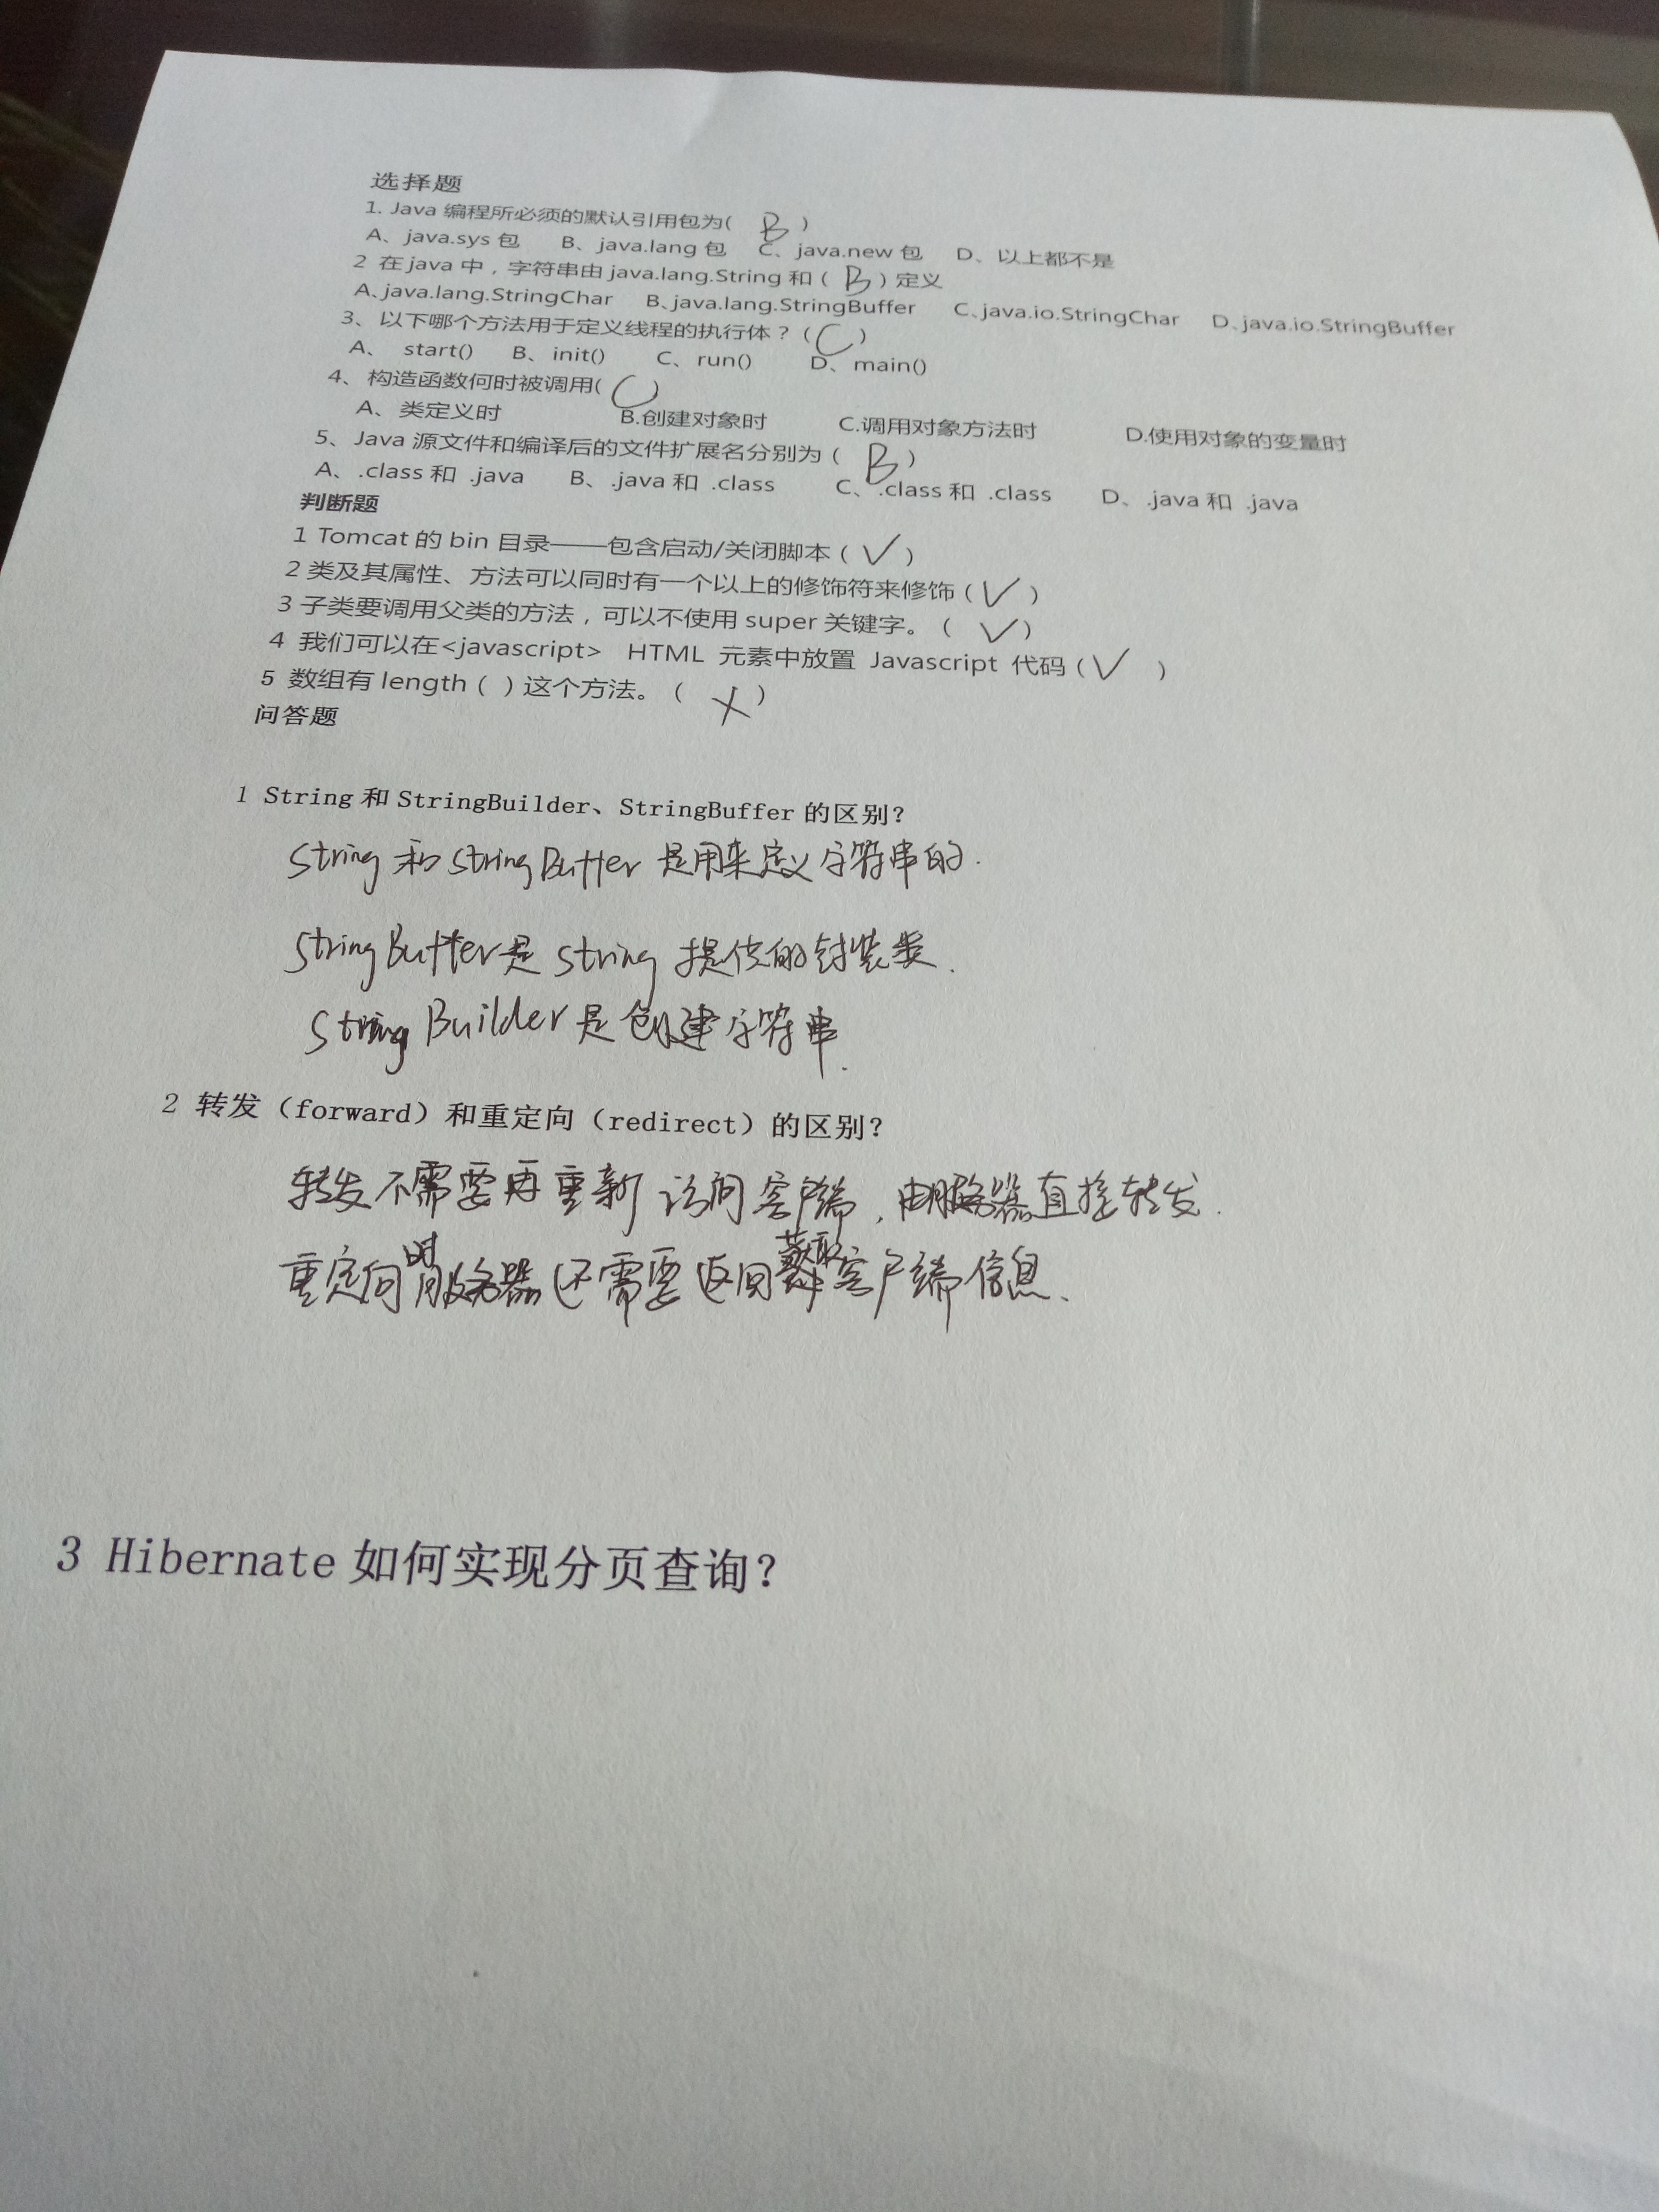 选择题
1. Java 编程所必须的默认引用包为( B )
A、java.sys 包 B、java.lang 包 C、java.new 包 D、以上都不是
2 在java 中，字符串由 java.lang.String 和（ B ）定义
A、java.lang.StringChar B、java.lang.StringBuffer C、java.io.StringChar D、java.io.StringBuffer
3、以下哪个方法用于定义线程的执行体？（ C ）
A、 start() B、init() C、run() D、main()
4、构造函数何时被调用( C )
A、类定义时 B.创建对象时 C.调用对象方法时 D.使用对象的变量时
5、Java 源文件和编译后的文件扩展名分别为（ B ）
A、.class 和 .java B、.java 和 .class C、.class 和 .class D、.java 和 .java
判断题
1 Tomcat 的 bin 目录——包含启动/关闭脚本（ ✓ ）
2 类及其属性、方法可以同时有一个以上的修饰符来修饰（ ✓ ）
3 子类要调用父类的方法，可以不使用 super 关键字。（ ✓ ）
4 我们可以在<javascript> HTML 元素中放置 Javascript 代码（ ✓ ）
5 数组有 length（ ）这个方法。（ × ）
问答题
1 String 和 StringBuilder、StringBuffer 的区别？
String 和 StringBuffer 是用来定义字符串的.
StringBuffer是 String 提供的封装类.
String Builder 是创建字符串.
2 转发（forward）和重定向（redirect）的区别？
转发不需要再重新访问客户端，由服务器直接转发.
重定向时服务器还需要返回获取客户端信息、
3 Hibernate 如何实现分页查询？